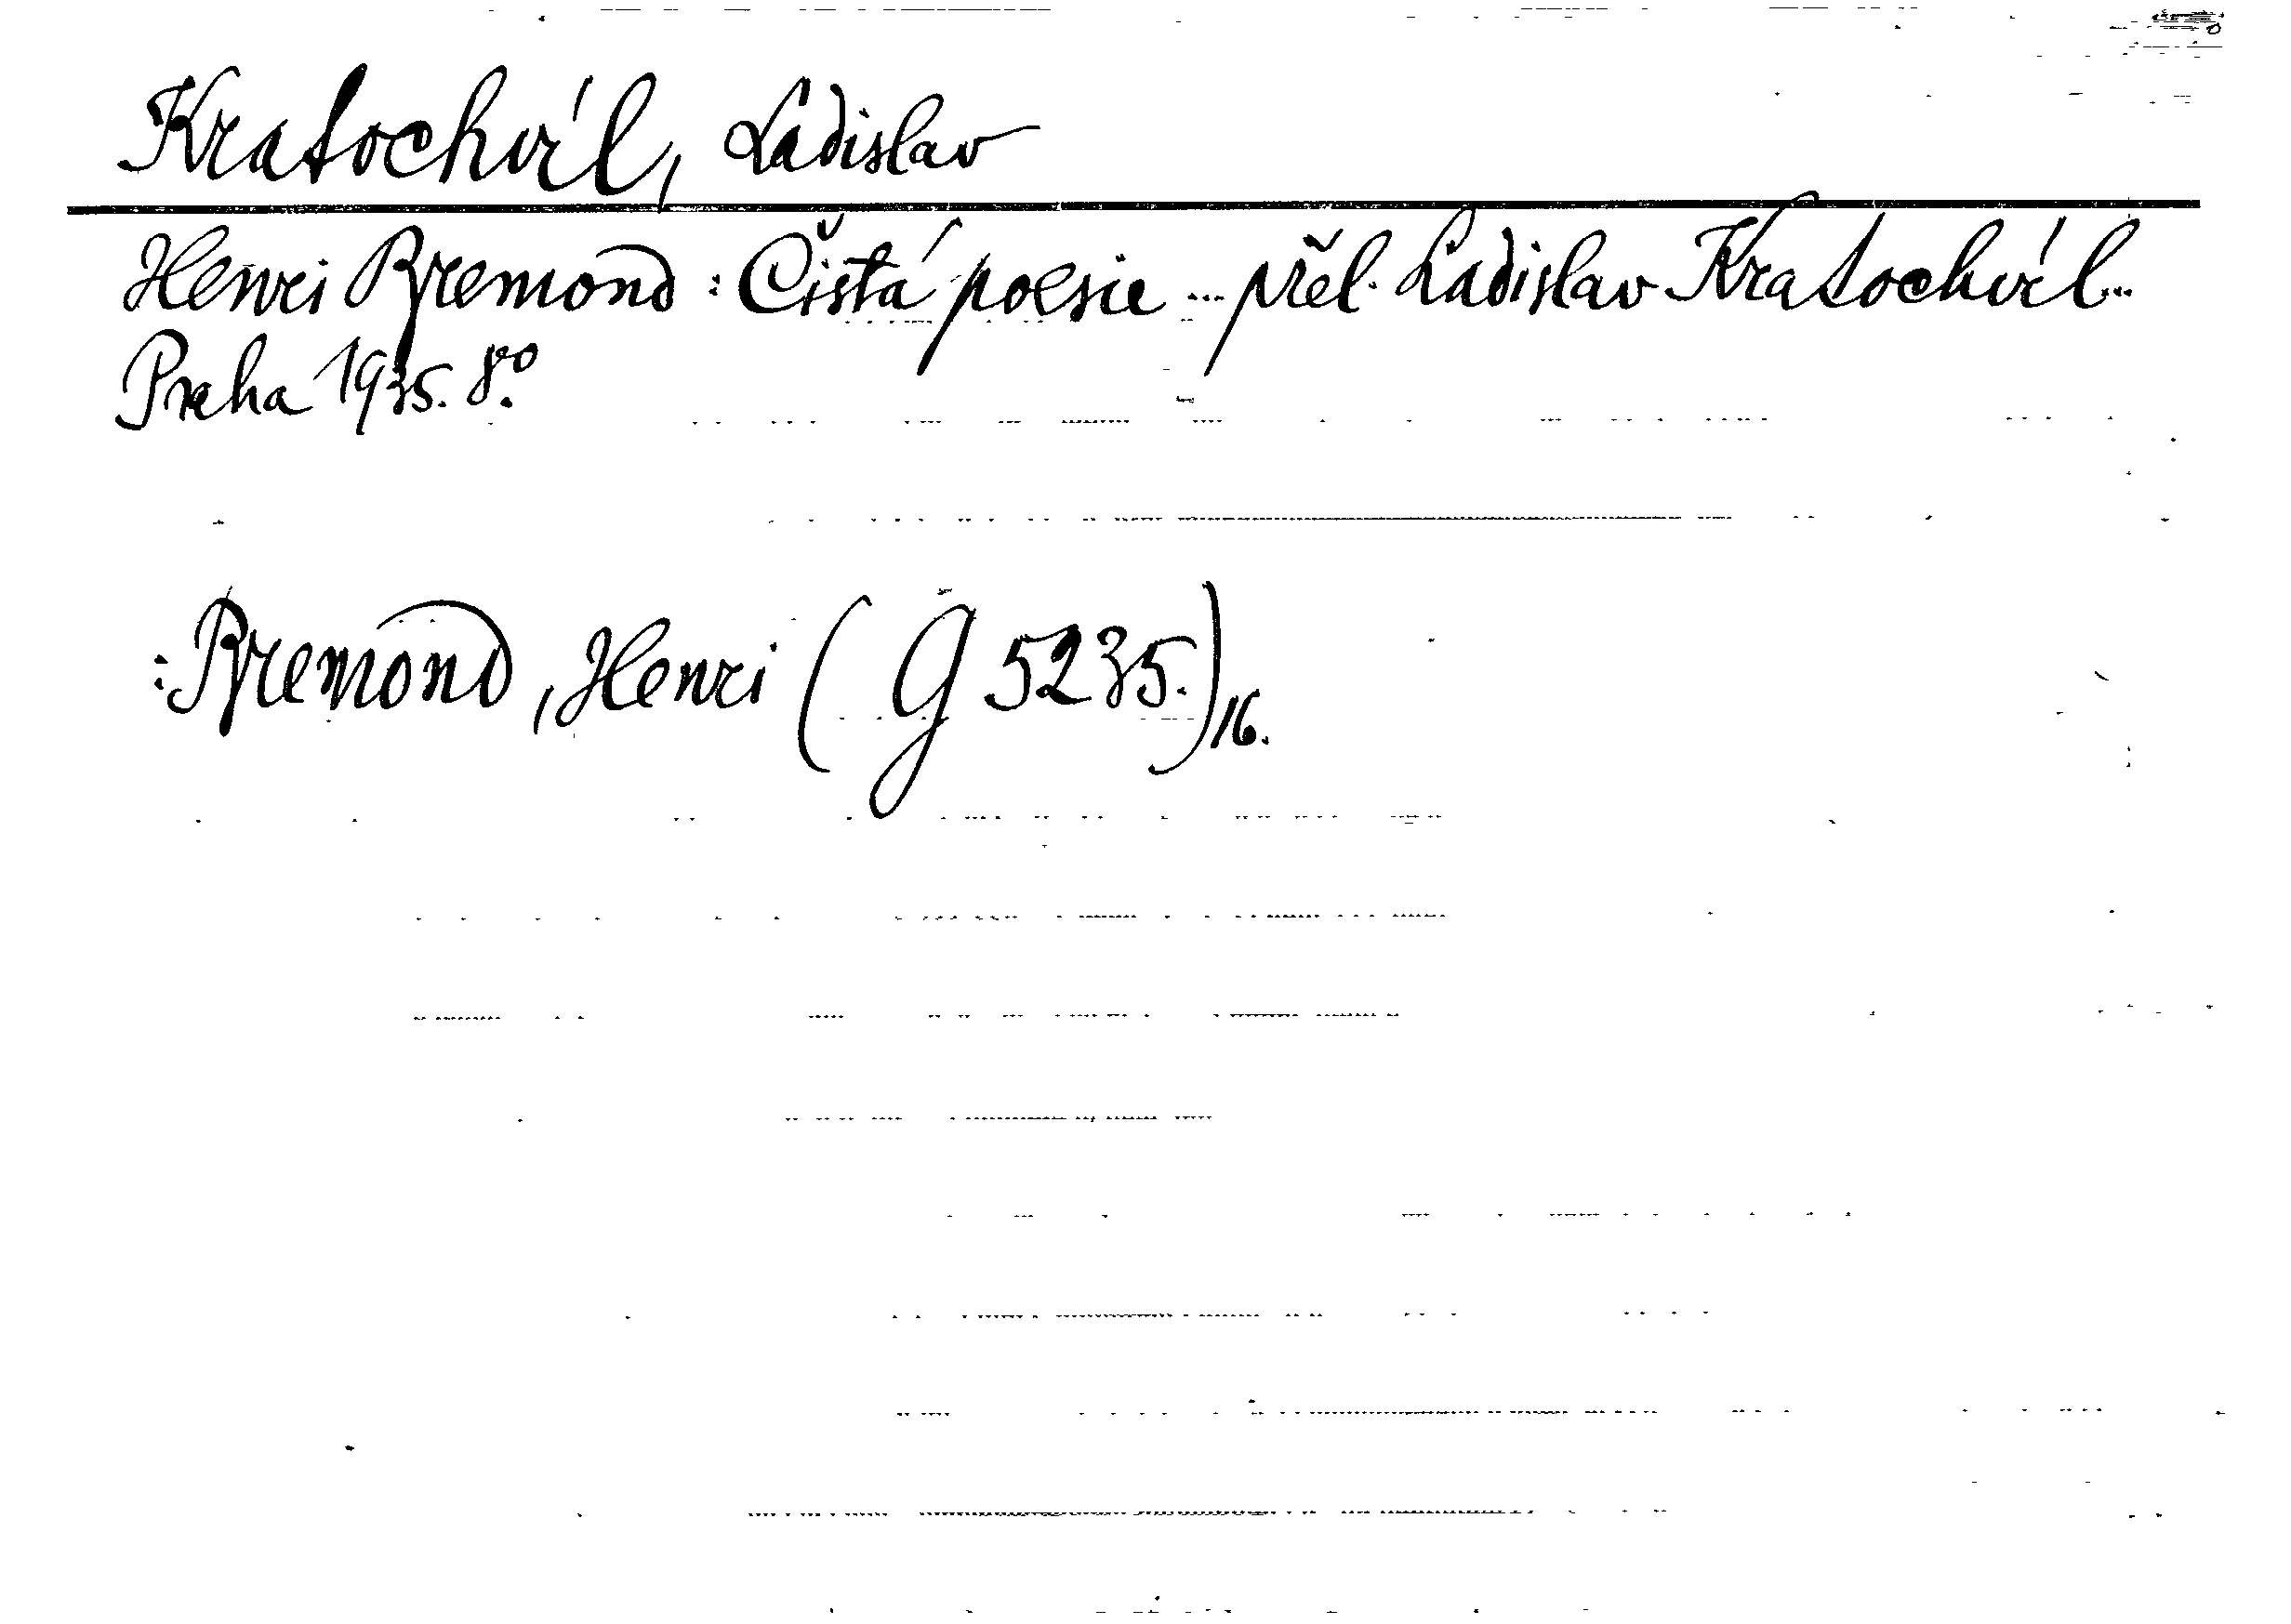 Kratochvíl, Ladislav
Henri Bremond: Čistá poesie ... přel. Ladislav Kratochvíl...
Praha 1935. 8º.
: Bremond, Henri (G 5235.)16.